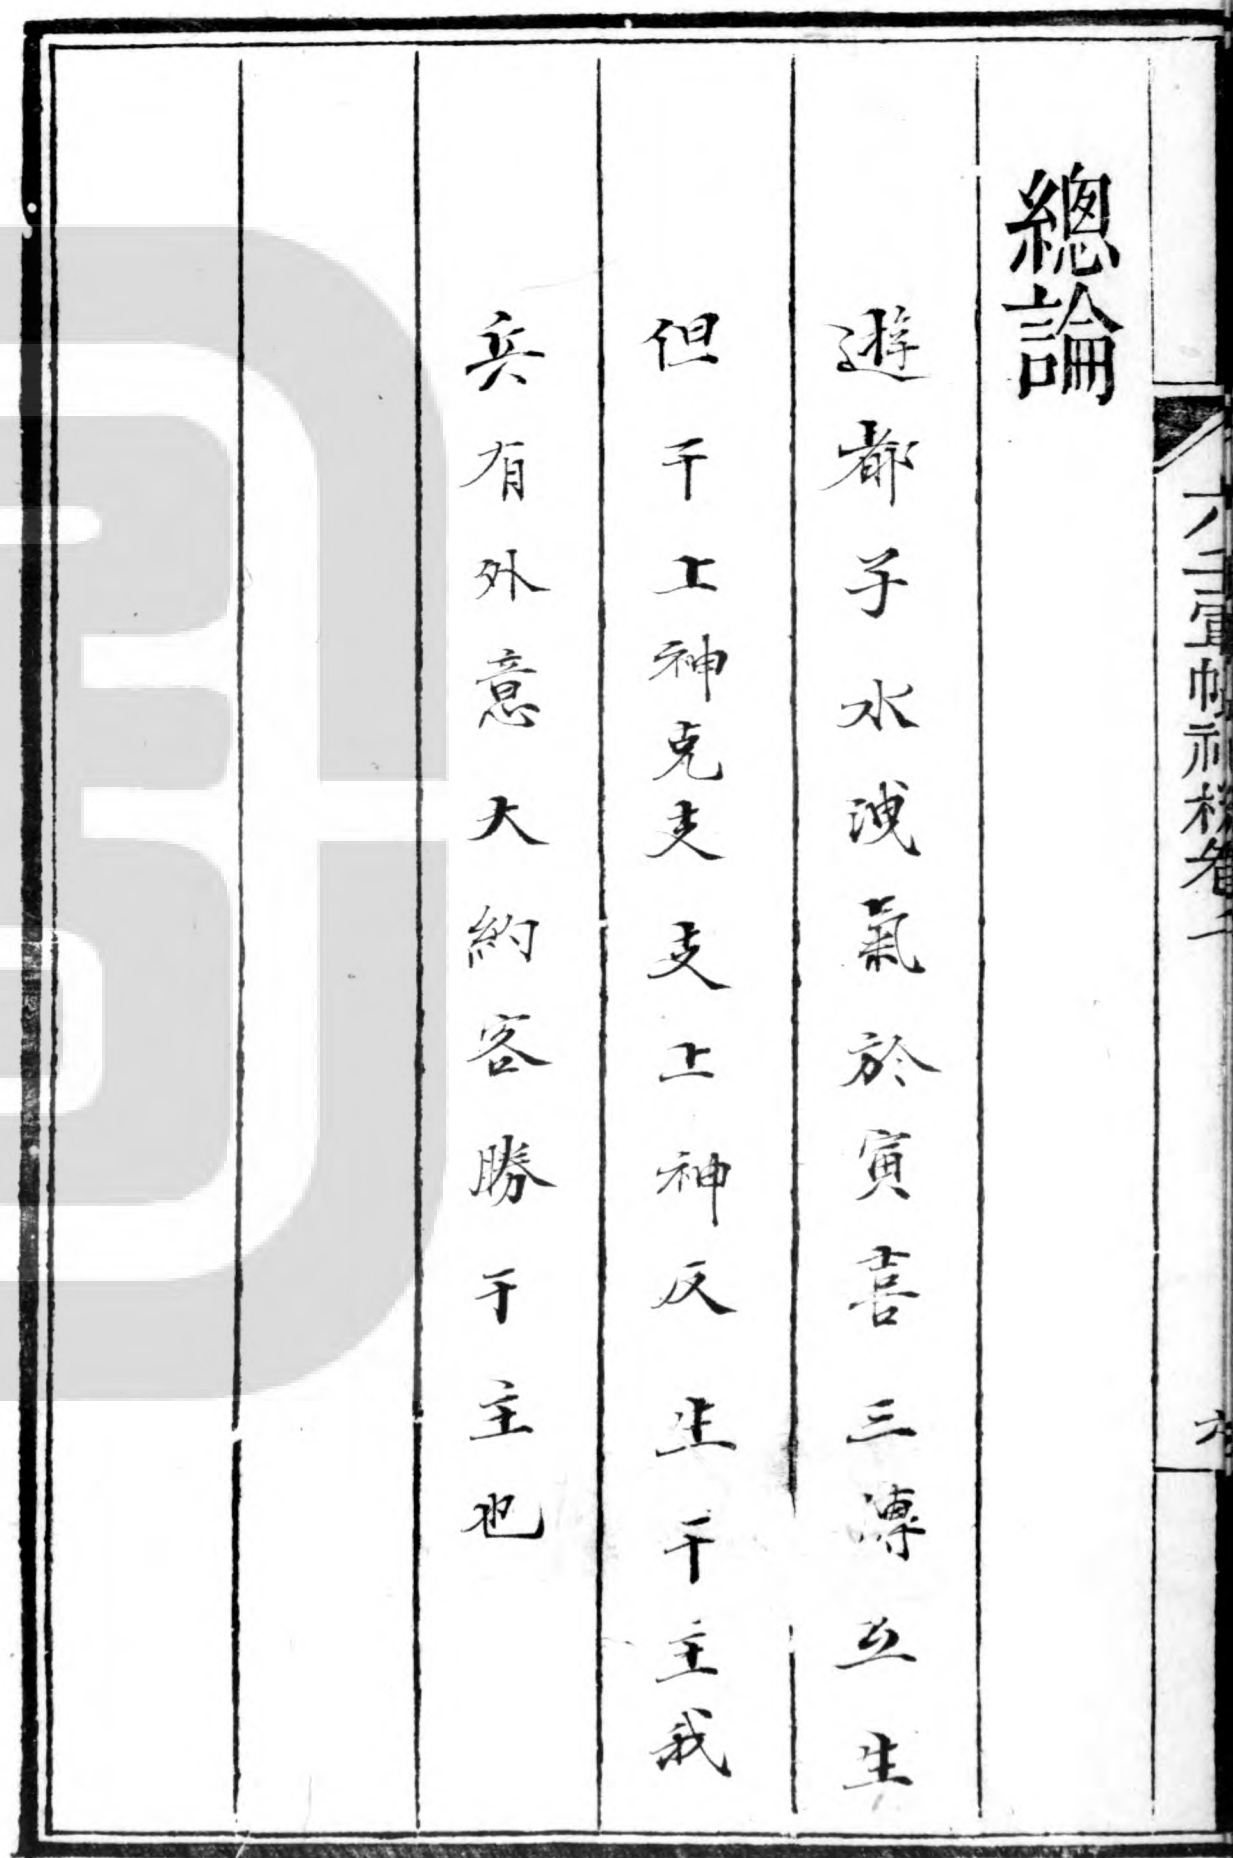 六壬軍帳神機卷
總論
遊都子水洩氣於寅喜三傳互生
但干上神克支支上神反生干主我
兵有外意大約客勝于主也